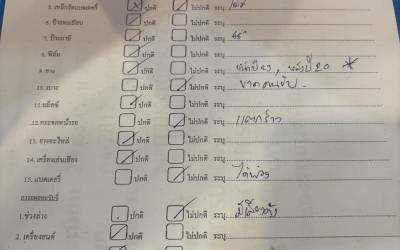 5. เหล็กรัดแบตเตอรี่ ปกติ ไม่ปกติ ระบุ
6. ป้ายทะเบียน ปกติ ไม่ปกติ ระบุ
7. ป้ายภาษี ปกติ ไม่ปกติ ระบุ 65
8. ฟิล์ม ปกติ ไม่ปกติ ระบุ
9. ยาง ปกติ ไม่ปกติ ระบุ หน้าปี 23, หลังปี 20 *
10. เบาะ ปกติ ไม่ปกติ ระบุ ขาดคนขับ.
11. แม็คซ์ ปกติ ไม่ปกติ ระบุ
12. กระจกหน้ารถ ปกติ ไม่ปกติ ระบุ แตกร้าว
13. ยางอะไหล่ ปกติ ไม่ปกติ ระบุ
14. เครื่องเล่นเสียง ปกติ ไม่ปกติ ระบุ
15. แบตเตอรี่ ปกติ ไม่ปกติ ระบุ ไฟพ่วง
การทดลองขับขี่
1. ช่วงล่าง ปกติ ไม่ปกติ ระบุ มีเสียงดัง
2. เครื่องยนต์ ปกติ ไม่ปกติ ระบุ